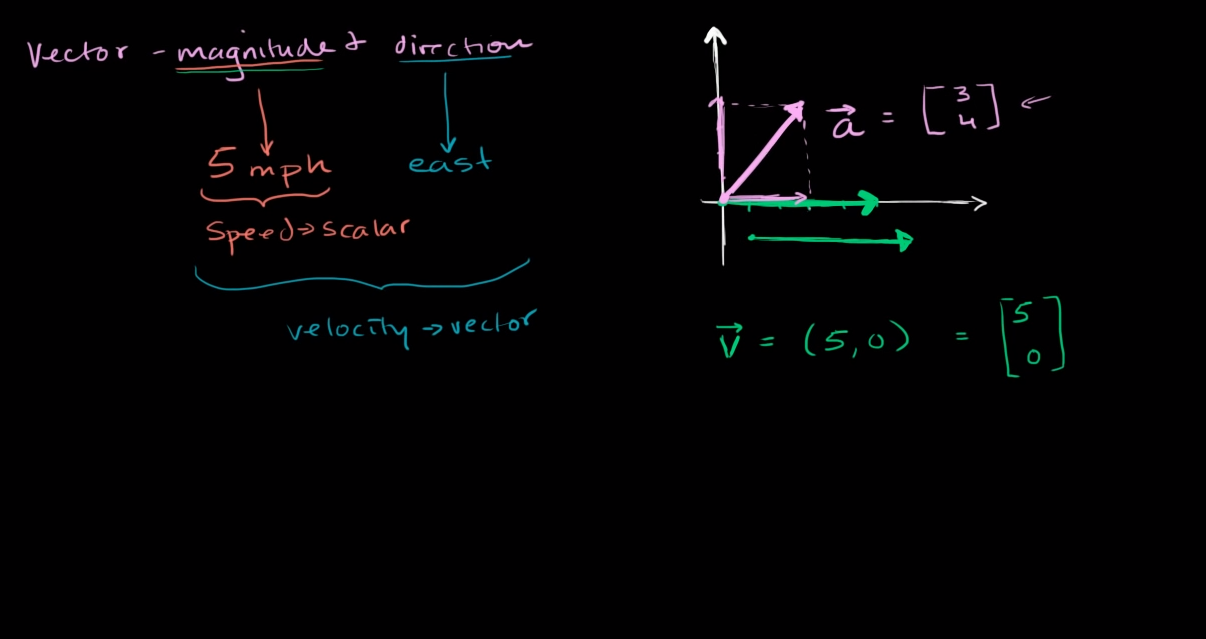 Vector - magnitude & direction
5 mph
east
Speed → scalar
velocity → vector
a⃗ = [3 4] ←
v⃗ = (5,0) = [5 0]